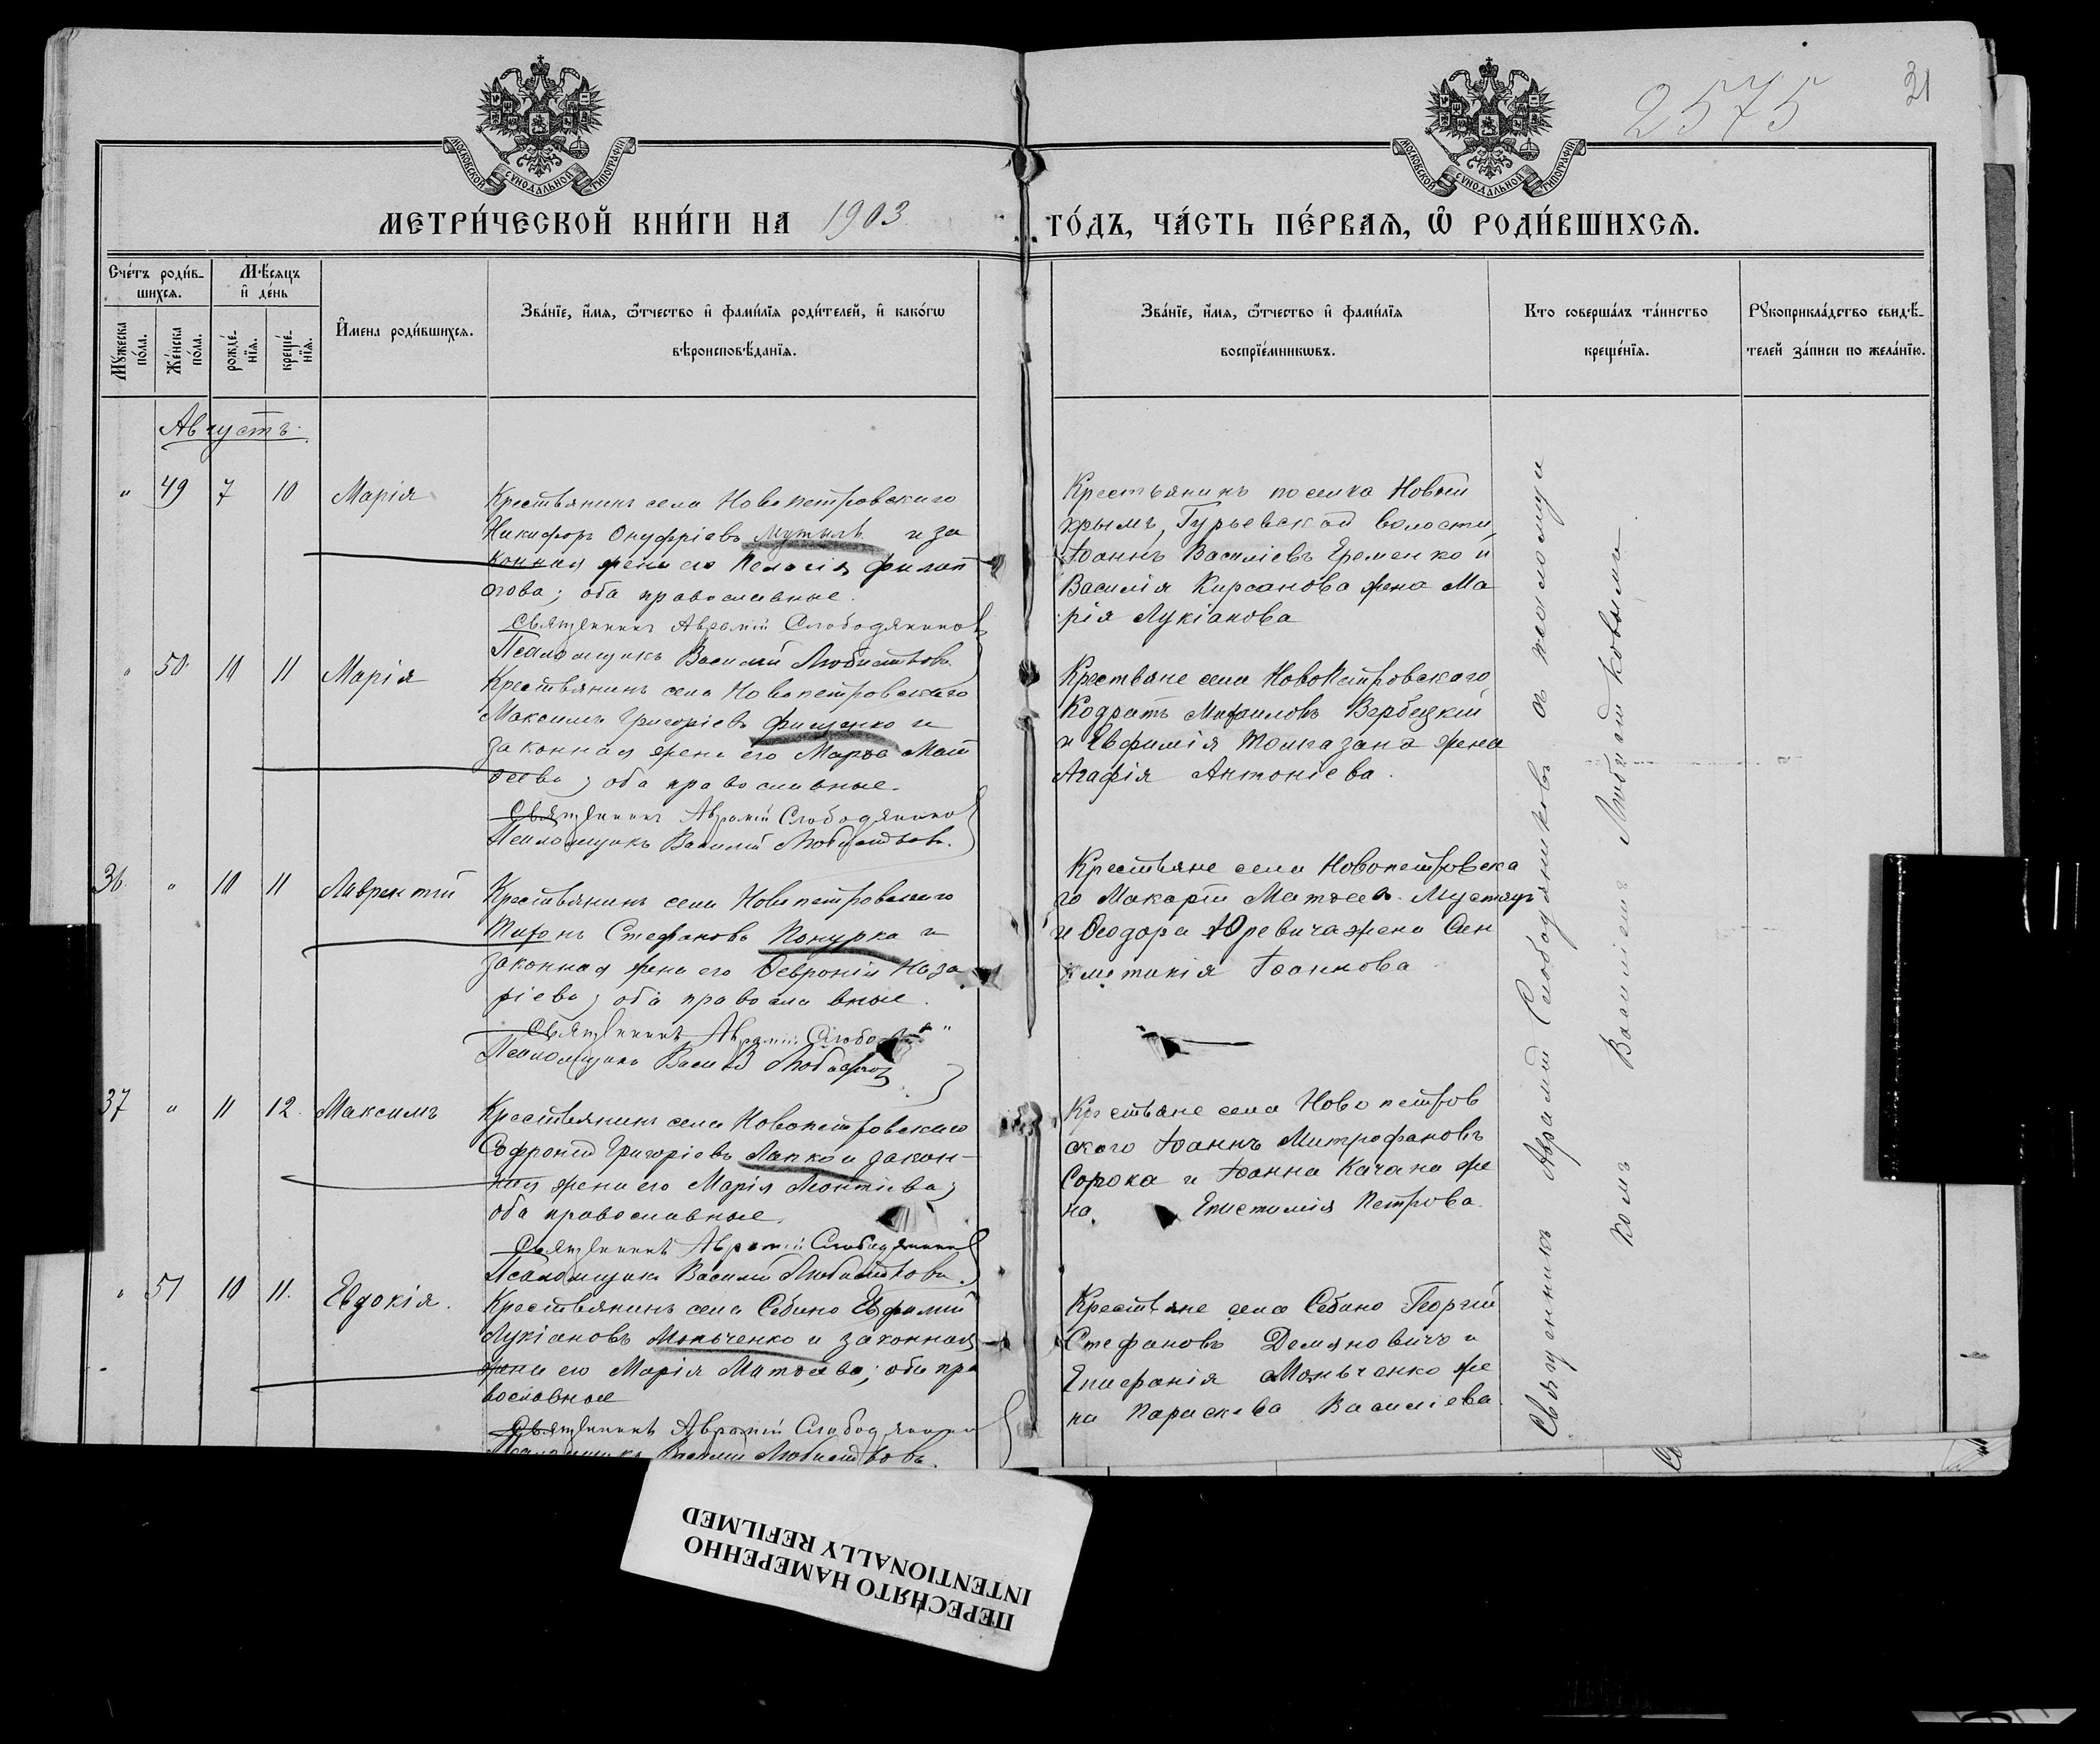 2575
31
МОСКОВСКОЙ СѴНОДАЛЬНОЙ ТИПОГРАФІИ
МОСКОВСКОЙ СѴНОДАЛЬНОЙ ТИПОГРАФІИ
МЕТРИ́ЧЕСКОЙ КНИ́ГИ НА 1903 ГО́ДЪ, ЧА́СТЬ ПЕ́РВАѦ, Ѽ РОДИ́ВШИХСѦ.
Сче́тъ роди́в-
шихсѧ.
Мѣ́сѧцъ
и҆ де́нь
Мꙋ́жеска
по́ла.
Же́нска
по́ла.
рожде́-
нїѧ.
креще́-
нїѧ.
И҆мена роди́вшихсѧ.
Зва́нїе, и҆́мѧ, ѻ҆́тчество и҆ фами́лїѧ роди́телей, и҆ како́гѡ
вѣроисповѣ́данїѧ.
Зва́нїе, и҆́мѧ, ѻ҆́тчество и҆ фами́лїѧ
воспрїе́мникѡвъ.
Кто соверша́лъ та́инство
креще́нїѧ.
Рꙋкоприкла́дство свидѣ́-
телей за́писи по жела́нїю.
Августъ.
" 49 7 10 Марія
Крестьянинъ села Новопетровскаго
Никифоръ Онуфріевъ и за
конная жена его Пелагія Филип
пова; оба православные.
Священникъ Аврамій Слободяников
Псаломщикъ Василій Любистковъ
Крестьянинъ поселка Новый
Крымъ, Гурьевской волости
Іоаннъ Василіевъ Еременко и
Василія Кирсанова жена Ма
рія Лукіанова
" 50 10 11 Марія
Крестьянинъ села Новопетровскаго
Максимъ Григоріевъ Фищенко и
законная жена его Марѳа Мат
ѳеева; оба православные.
Священникъ Аврамій Слободянико
Псаломщикъ Василій Любистковъ.
Крестьяне села Новопетровскаго
Кодратъ Вербецкій
и Евфимія жена
Агафія Антоніева.
36 " 10 11 Лаврентій
Крестьянинъ села Новопетровскаго
Стефановъ Понурка и
законная жена его Ѳевронія Наза
ріева; оба православные.
Священникъ Аврамій Слобо
Псаломщикъ Василій
Крестьяне села Новопетровска
го Макарій Матѳеевъ
и Ѳеодора Юревича жена Син
клитикія Іоаннова
37 " 11 12. Максимъ
Крестьянинъ села Новопетровскаго
Софроній Григоріевъ Лапко и закон-
ная жена его Марія Леонтіева;
оба православные.
Священникъ Аврамій Слободяников
Псаломщикъ Василій Любистковъ.
Крестьяне села Новопетров
скаго Іоаннъ Митрофановъ
Сорока и Іоанна Качана же
на Епистимія Петрова.
" 51 10 11. Евдокія.
Крестьянинъ села Себино Евфимій
Лукіановъ и законная
жена его Марія Матѳеева; оба пра
вославные
Священникъ Аврамій Слободяников
Псаломщикъ Василій Любистковъ.
Крестьяне села Себино Георгій
Стефановъ Демяновичъ и
Епифанія же
на Параскева Василіева.
Священникъ Аврамій Слободяниковъ съ псаломщи
комъ Василіемъ Любистковымъ.
ПЕРЕСНЯТО НАМЕРЕННО
INTENTIONALLY REFILMED